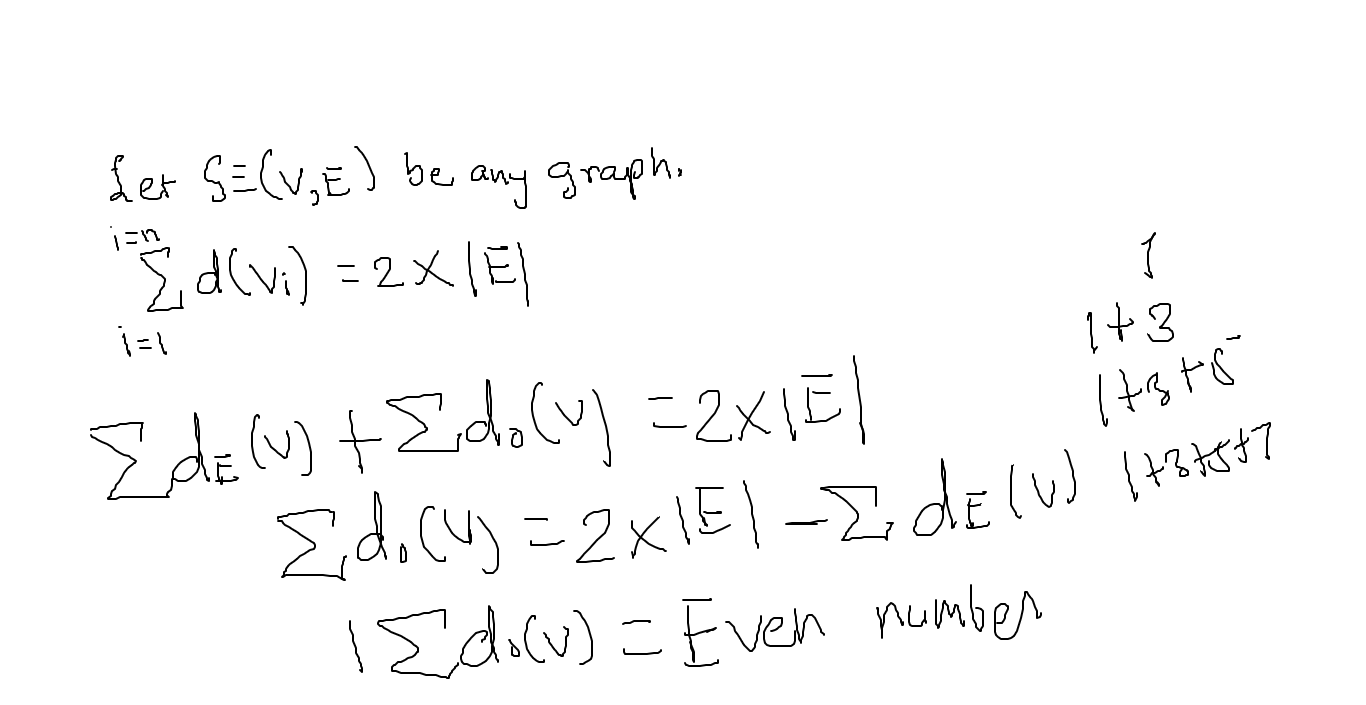 Let G≡(V,E) be any graph.
i=n
∑ d(vi) = 2 X |E|
i=1
∑dE(v) + ∑do(v) = 2x|E|
∑do(v) = 2x|E| - ∑ dE(v)
|∑do(v) = Even number
1
1+3
1+3+5
1+3+5+7